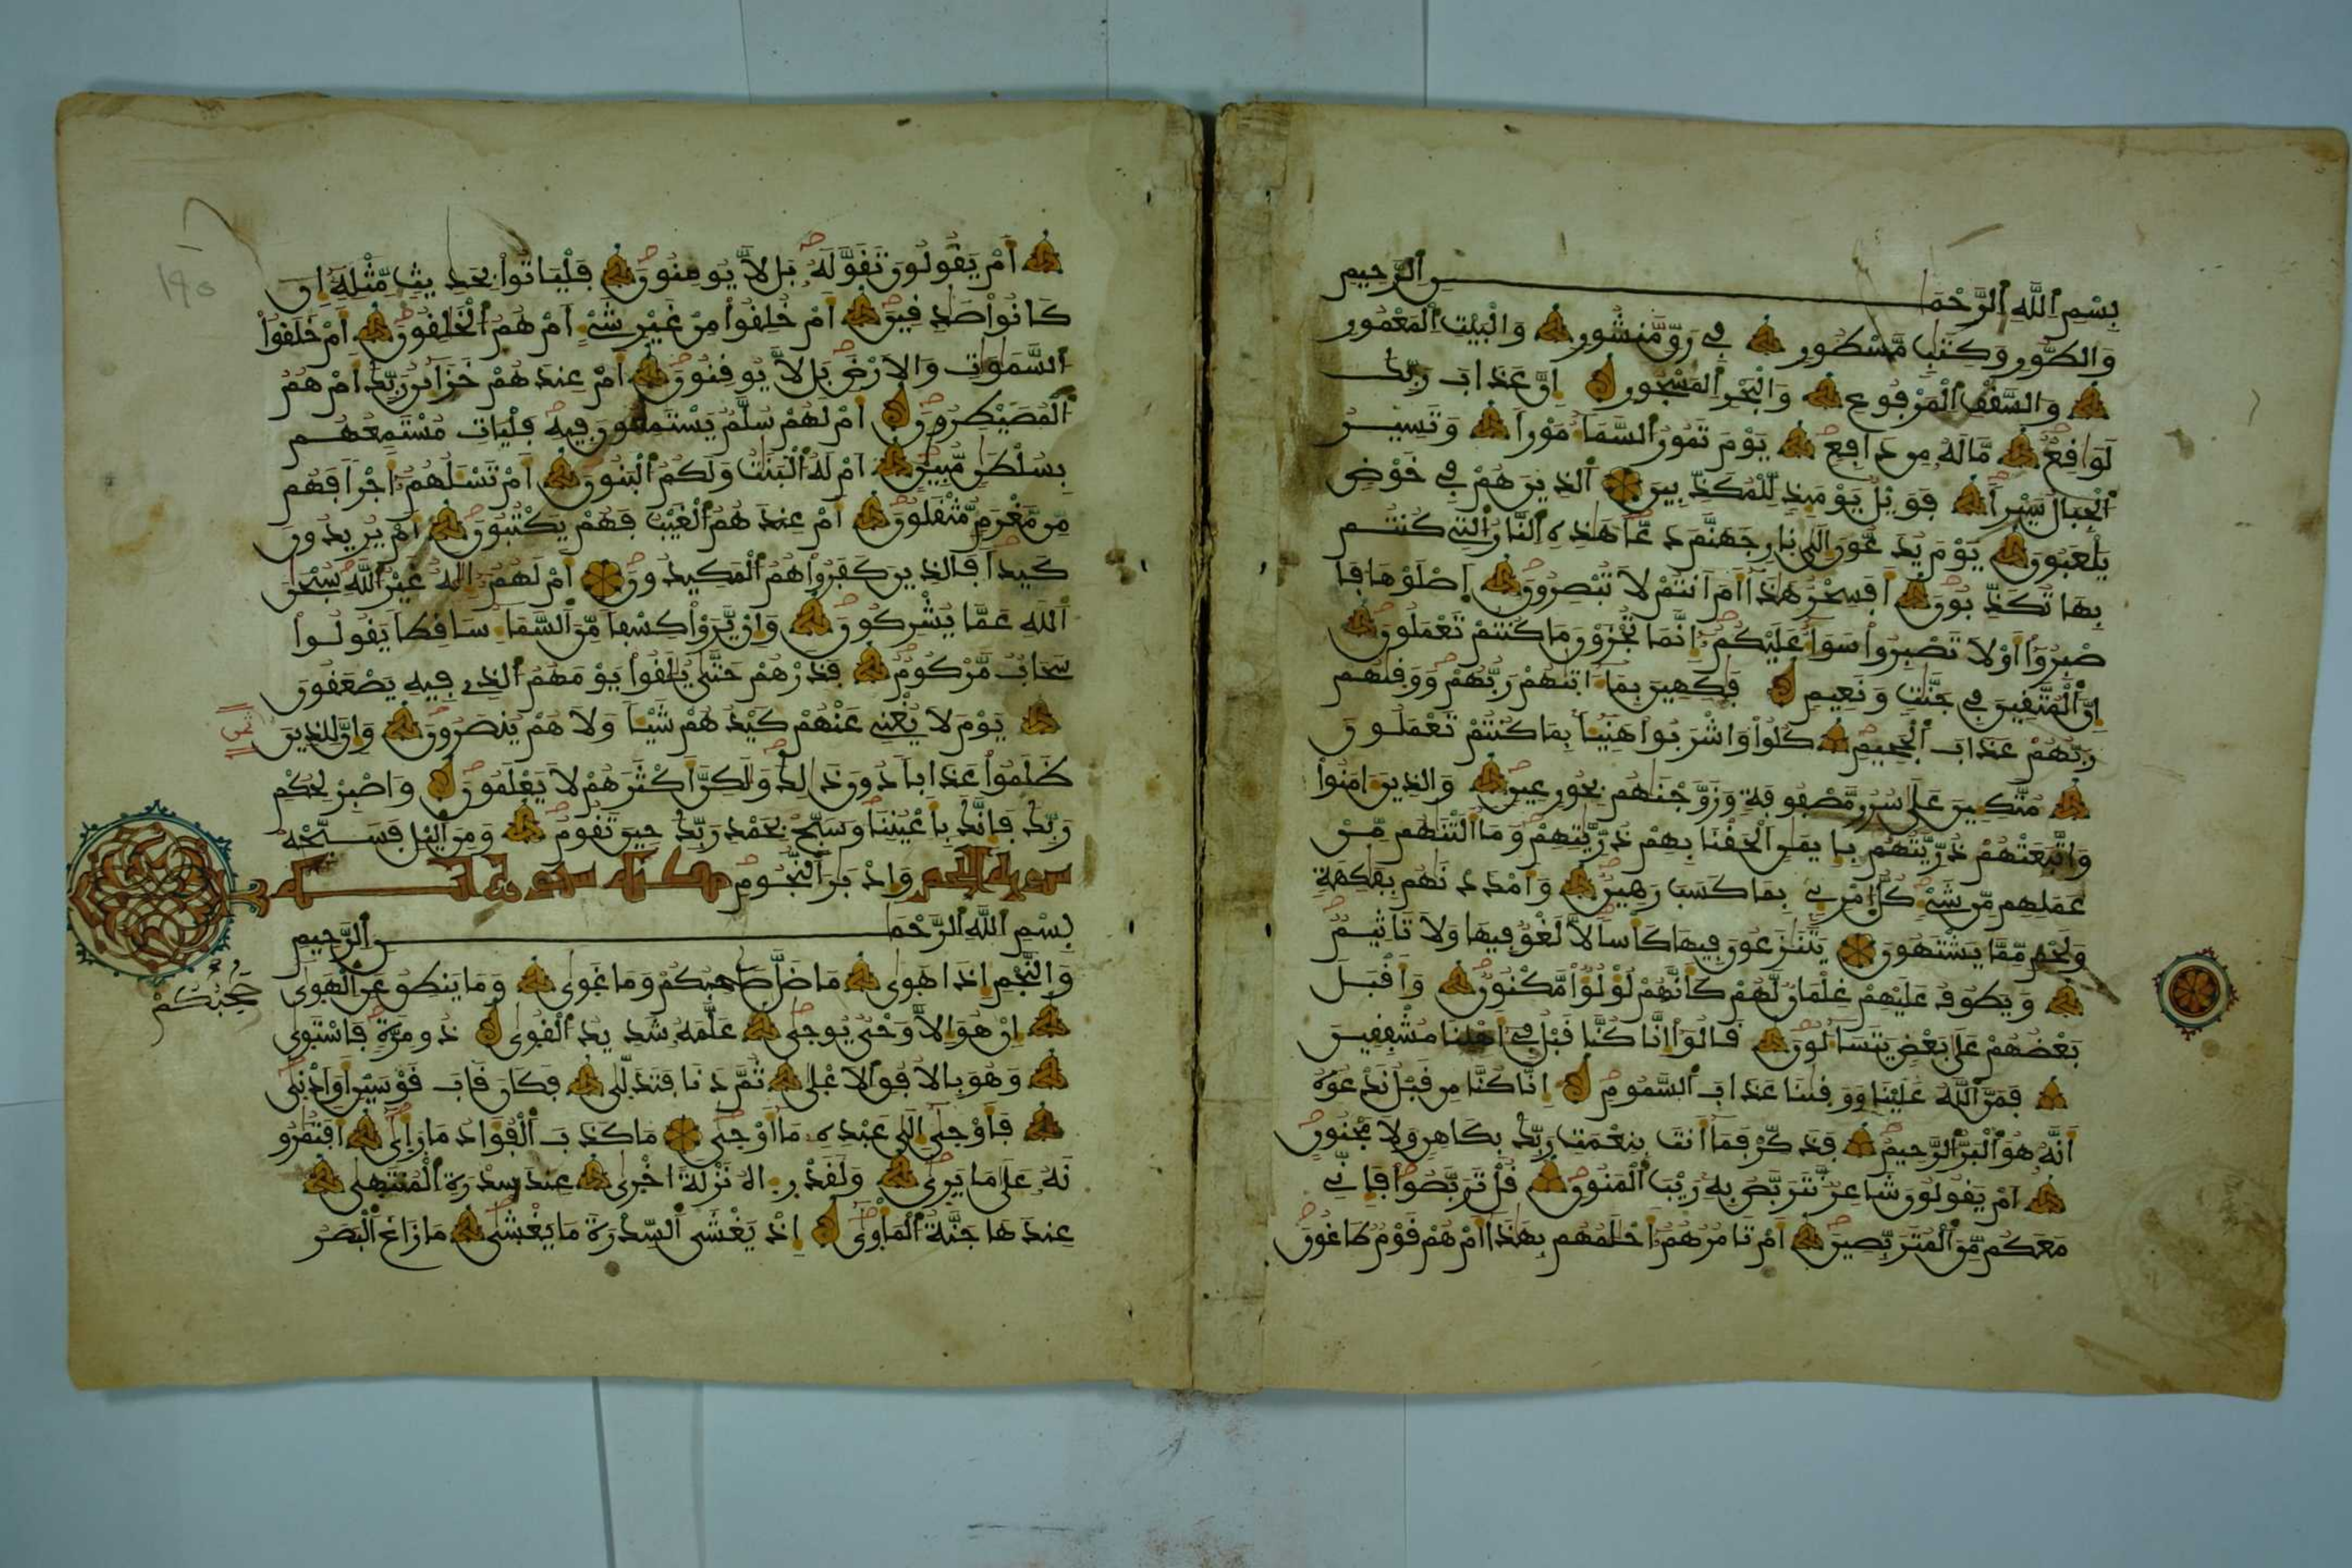 بسم الله الرحمن الرحيم
والطور وكتب مسطور في رق منشور والبيت المعمور
والسقف المرفوع والبحر المسجور ان عذاب ربك
لواقع ما له من دافع يوم تمور السماء مورا وتسير
الجبال سيرا فويل يومئذ للمكذبين الذين هم في خوض
يلعبون يوم يدعون الى نار جهنم دعا هذه النار التي كنتم
بها تكذبون افسحر هذا ام انتم لا تبصرون اصلوها فا
صبروا او لا تصبروا سواء عليكم انما تجزون ما كنتم تعملون
ان المتقين في جنت ونعيم فكهين بما ءاتيهم ربهم ووقيهم
ربهم عذاب الجحيم كلوا واشربوا هنيئا بما كنتم تعملون
متكين على سرر مصفوفة وزوجنهم بحور عين والذين ءامنوا
واتبعتهم ذريتهم بايمن الحقنا بهم ذريتهم وما التنهم من
عملهم من شيء كل امرئ بما كسب رهين وامددنهم بفكهة
ولحم مما يشتهون يتنزعون فيها كأسا لا لغو فيها ولا تأثيم
ويطوف عليهم غلمان لهم كأنهم لؤلؤ مكنون واقبل
بعضهم على بعض يتساءلون قالوا انا كنا قبل في اهلنا مشفقين
فمن الله علينا ووقينا عذاب السموم انا كنا من قبل ندعوه
انه هو البر الرحيم فذكر فما انت بنعمت ربك بكاهن ولا مجنون
ام يقولون شاعر نتربص به ريب المنون قل تربصوا فاني
معكم من المتربصين ام تأمرهم احلمهم بهذا ام هم قوم طاغون
ام يقولون تقوله بل لا يومنون فلياتوا بحديث مثله ان
كانوا صدقين ام خلقوا من غير شيء ام هم الخلقون ام خلقوا
السموت والارض بل لا يوقنون ام عندهم خزائن ربك ام هم
المصيطرون ام لهم سلم يستمعون فيه فليات مستمعهم
بسلطن مبين ام له البنت ولكم البنون ام تسلهم اجرا فهم
من مغرم مثقلون ام عندهم الغيب فهم يكتبون ام يريدون
كيدا فالذين كفروا هم المكيدون ام لهم اله غير الله سبحن
الله عما يشركون وان يروا كسفا من السماء ساقطا يقولوا
سحاب مركوم فذرهم حتى يلقوا يومهم الذي فيه يصعقون
يوم لا يغني عنهم كيدهم شيئا ولا هم ينصرون وان للذين
ثمن
ظلموا عذابا دون ذلك ولكن اكثرهم لا يعلمون واصبر لحكم
ربك فانك باعيننا وسبح بحمد ربك حين تقوم ومن اليل فسبحه
وادبر النجوم
بسم الله الرحمن الرحيم
والنجم اذا هوى ما ضل صاحبكم وما غوى وما ينطق عن الهوى
صحبكم
ان هو الا وحي يوحى علمه شديد القوى ذو مرة فاستوى
وهو بالافق الاعلى ثم دنا فتدلى فكان قاب قوسين او ادنى
فأوحى الى عبده ما أوحى ما كذب الفؤاد ما رأى افتمرو
نه على ما يرى ولقد رءاه نزلة اخرى عند سدرة المنتهى
عندها جنة المأوى اذ يغشى السدرة ما يغشى ما زاغ البصر